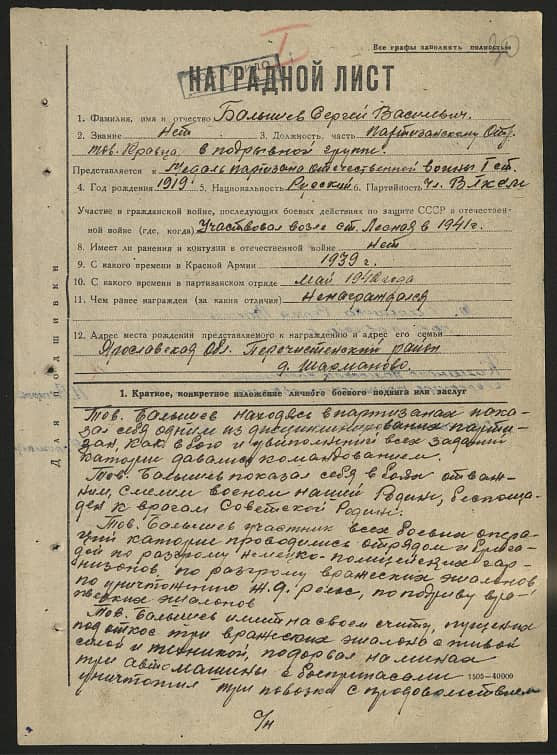 Все графы заполнять полностью
I
20
НАГРАДНОЙ ЛИСТ
1. Фамилия, имя и отчество Балышев Сергей Василъевич.
2. Звание Нет 3. Должность, часть Партизанскому Отр.
тов. Кравца в подрывной группе.
Представляется к Медаль партизана отечественной войны I ст.
4. Год рождения 1919 г. 5. Национальность Русский 6. Партийность чл. ВЛКСМ
Участие в гражданской войне, последующих боевых действиях по защите СССР и отечествен-
ной войне (где, когда) Участвовал возле ст. Лесная в 1941 г.
8. Имеет ли ранения и контузии в отечественной войне Нет
9. С какого времени в Красной Армии 1939 г.
10. С какого времени в партизанском отряде май 1942 года
11. Чем ранее награжден (за какия отличия) Ненаграждался
12. Адрес места рождения представляемого к награждению и адрес его семьи
Ярославская обл. Перечистенский район
д. Шарманово.
Для подшивки
1. Краткое, конкретное изложение личного боевого подвига или заслуг
Тов. Балышев находясь в партизанах пока-
зал себя одним из дисциплинированных парти-
зан, как в бою и у выполнении всех заданий
катории давались командованием.
Тов. Балышев показал себя в боях отваж-
ним, смелим военом нашей Родини, беспоща-
ден к врагам Советской Родини.
Тов. Балышев участник всех боевих опера-
ций катории проводились отрядом и брига-
дой по разгрому немецко-полицейских гар-
низонов по разгрому вражеских эшалонов
по уничтожению ж.д. релс, по подриву вра-
жеских эшалонов
Тов. Балышев имеит на своем считу, пущених
под откос три вражеских эшалона с живой
силой и техникой, подорвал на минах
три автомашини с боеприпасами
уничтожил три повозки с продоволствием
1505-40000
с/н